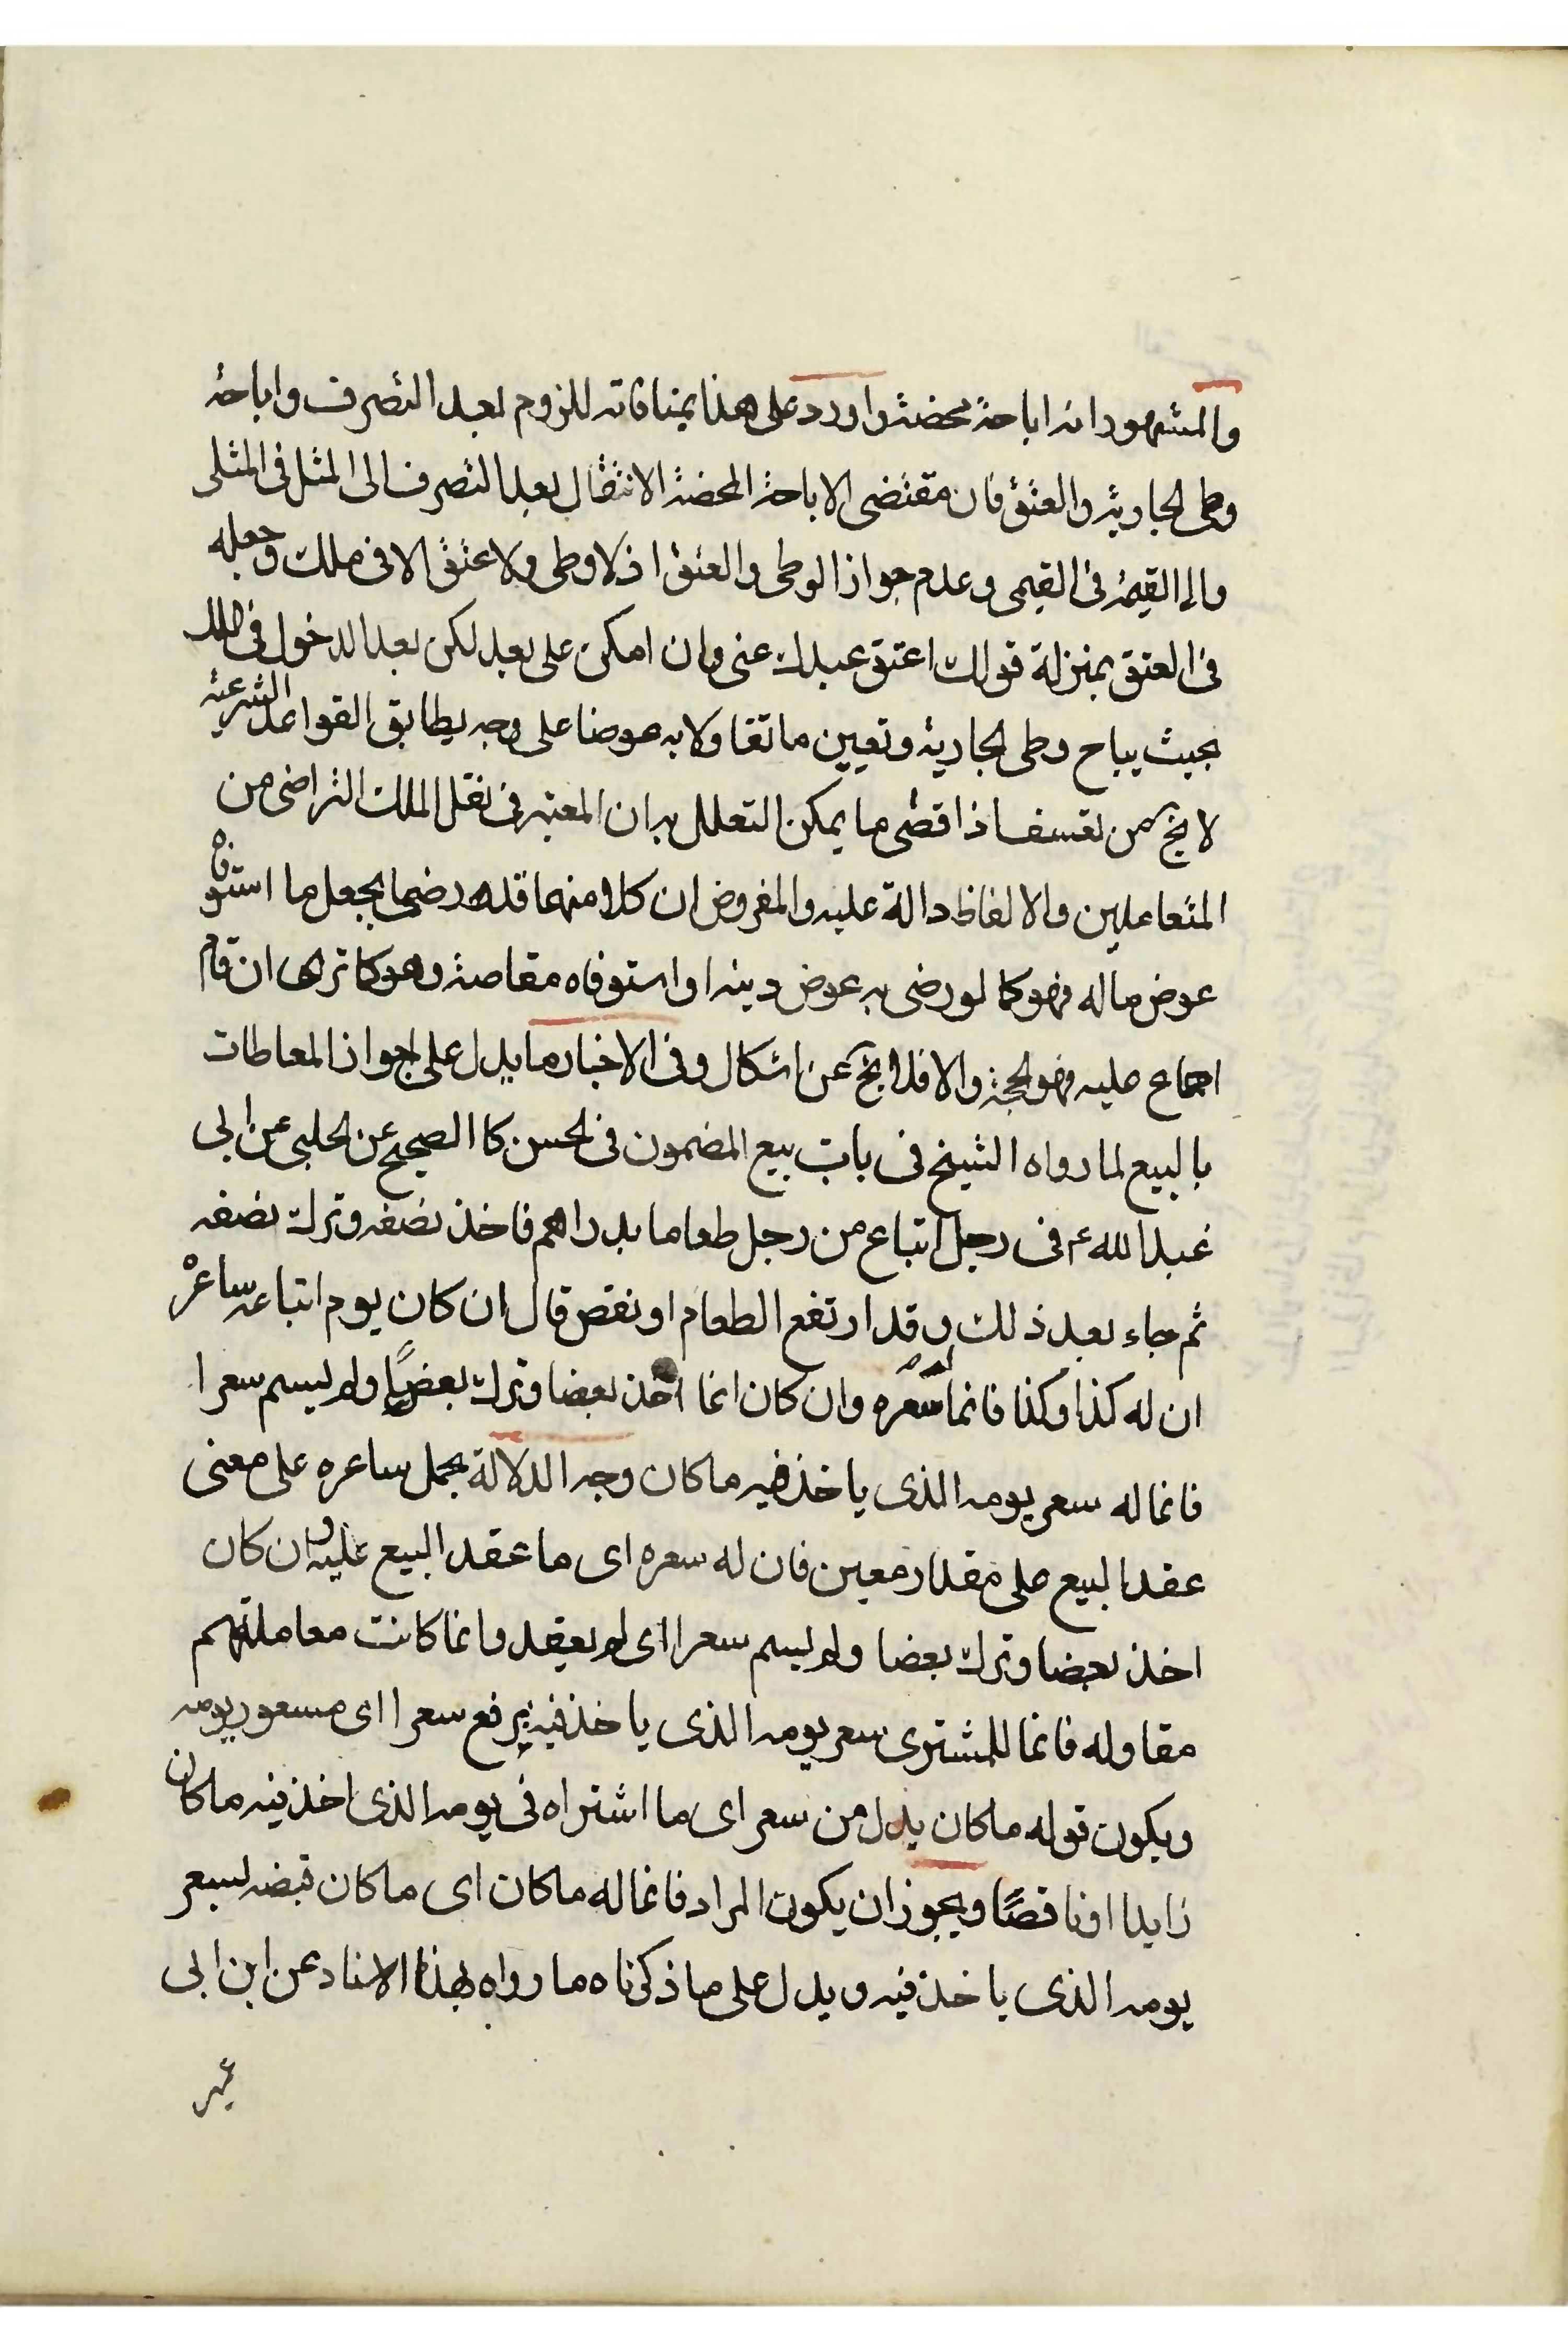 والمشهور انه اباحة محضة واورد على هذا بمنافاته للزوم بعد التصرف واباحة
وطى الجارية والعتق فان مقتضى الاباحة المحضة الانتقال بعد التصرف الى المثل فى المثلى
والى القيمة فى القيمى وعدم جواز الوطى والعتق اذ لا وطى ولا عتق الا فى ملك وجعله
فى العتق بمنزلة قولك اعتق عبدك عنى وان امكن على بعد لكن بعد الدخول فى الملك
بحيث يباح وطى الجارية وتعيين ما تقاولا به عوضا على وجه يطابق القواعد الشرعية
لا يخ من تعسف اذ اقصى ما يمكن التعلل به ان المعتبر فى نقل الملك التراضى من
المتعاملين والالفاظ دالة عليه والمفروض ان كلا منهما قد رضى بجعل ما استوفاه
عوض ماله فهو كما لو رضى به عوض دينه او استوفاه مقاصة وهو كما ترى ان قام
اجماع عليه فهو الحجة والا فلا يخ عن اشكال وفى الاخبار ما يدل على جواز المعاطات
بالبيع لما رواه الشيخ فى باب بيع المضمون فى الحسن كا الصحيح عن الحلبى عن ابى
عبد الله ع فى رجل ابتاع من رجل طعاما بدراهم فاخذ نصفه وترك نصفه
ثم جاء بعد ذلك وقد ارتفع الطعام او نقص قال ان كان يوم ابتاعه ساعره
ان له كذا وكذا فانما له سعره وان كان انما اخذ بعضا وترك بعضا ولم يسم سعرا
فانما له سعر يومه الذى ياخذ فيه ما كان وجه الدلالة بحمل ساعره على معنى
عقد البيع على مقدار معين فان له سعره اى ما عقد البيع عليه وان كان
اخذ بعضا وترك بعضا ولم يسم سعرا اى لم يعقد وانما كانت معاملتهم
مقاوله فانما للمشترى سعر يومه الذى ياخذ فيه برفع سعر اى مسعور يومه
ويكون قوله ما كان بدل من سعر اى ما اشتراه فى يومه الذى اخذ فيه ما كان
زايدا او ناقصًا ويجوز ان يكون المراد فانما له ما كان اى ما كان قبضه لسعر
يومه الذى ياخذ فيه ويدل على ما ذكرناه ما رواه بهذا الاسناد عن ابن ابى
عمير